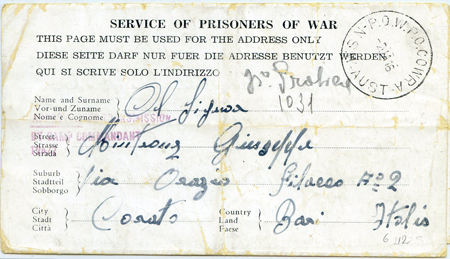 SERVICE OF PRISONERS OF WAR
THIS PAGE MUST BE USED FOR THE ADDRESS ONLY
DIESE SEITE DARF NUR FUER DIE ADRESSE BENUTZT WERDEN
QUI SI SCRIVE SOLO L'INDIRIZZO
1031
Name and Surname
Vor-und Zuname
Nome e Cognome
Street
Strasse
Strada
CAMP COMMANDANT
Giuseppe
Suburb
Stadtteil
Sobborgo
Via Orazio Flacco No 2
City
Stadt
Città
Corato
Country
Land
Paese
Bari Italia